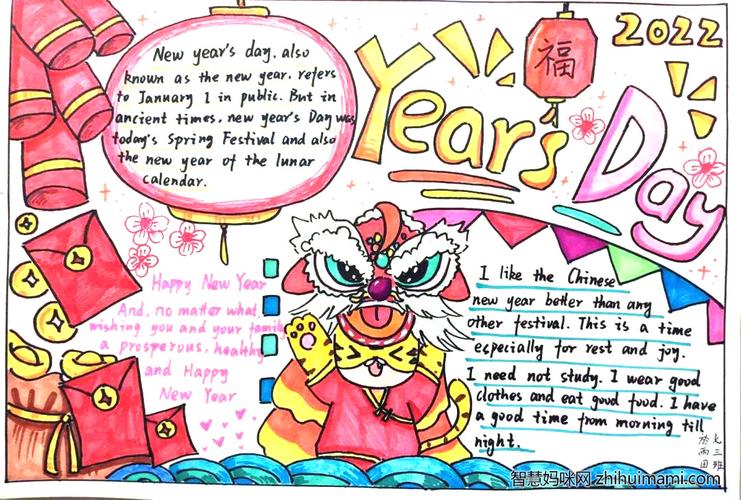 2022
福
Year's
Day
New year's day, also
known as the new year, refers
to January 1 in public. But in
ancient times, new year's Day was
today's Spring Festival and also
the new year of the lunar
calendar.
Happy New Year
And, no matter what,
wishing you and your family
a prosperous, healthy
and Happy
New Year
I like the Chinese
new year better than any
other festival. This is a time
especially for rest and joy.
I need not study. I wear good
clothes and eat good food. I have
a good time from morning till
night.
智慧妈咪网 zhihuimami.com